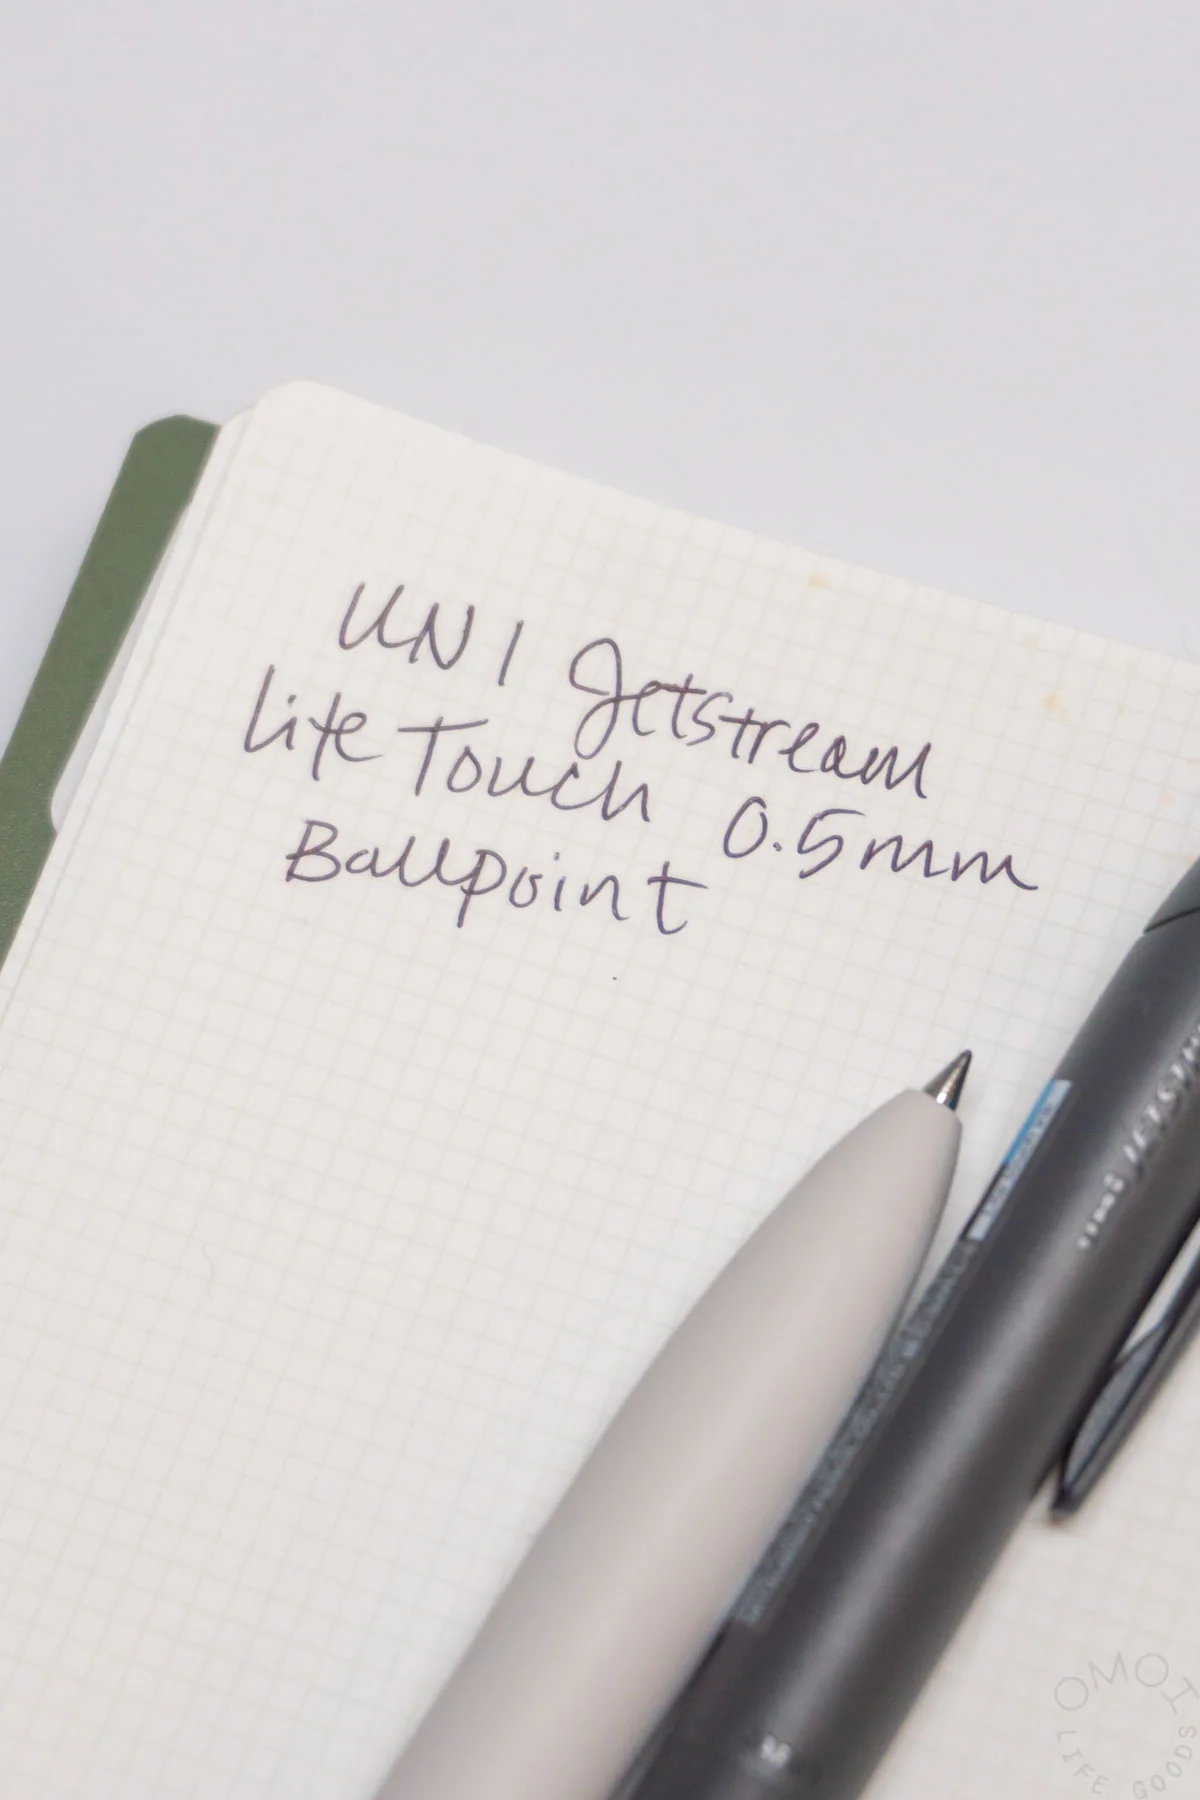 UNI Jetstream
Lite Touch 0.5mm
Ballpoint
JETSTR
OMOI
LIFE GOODS